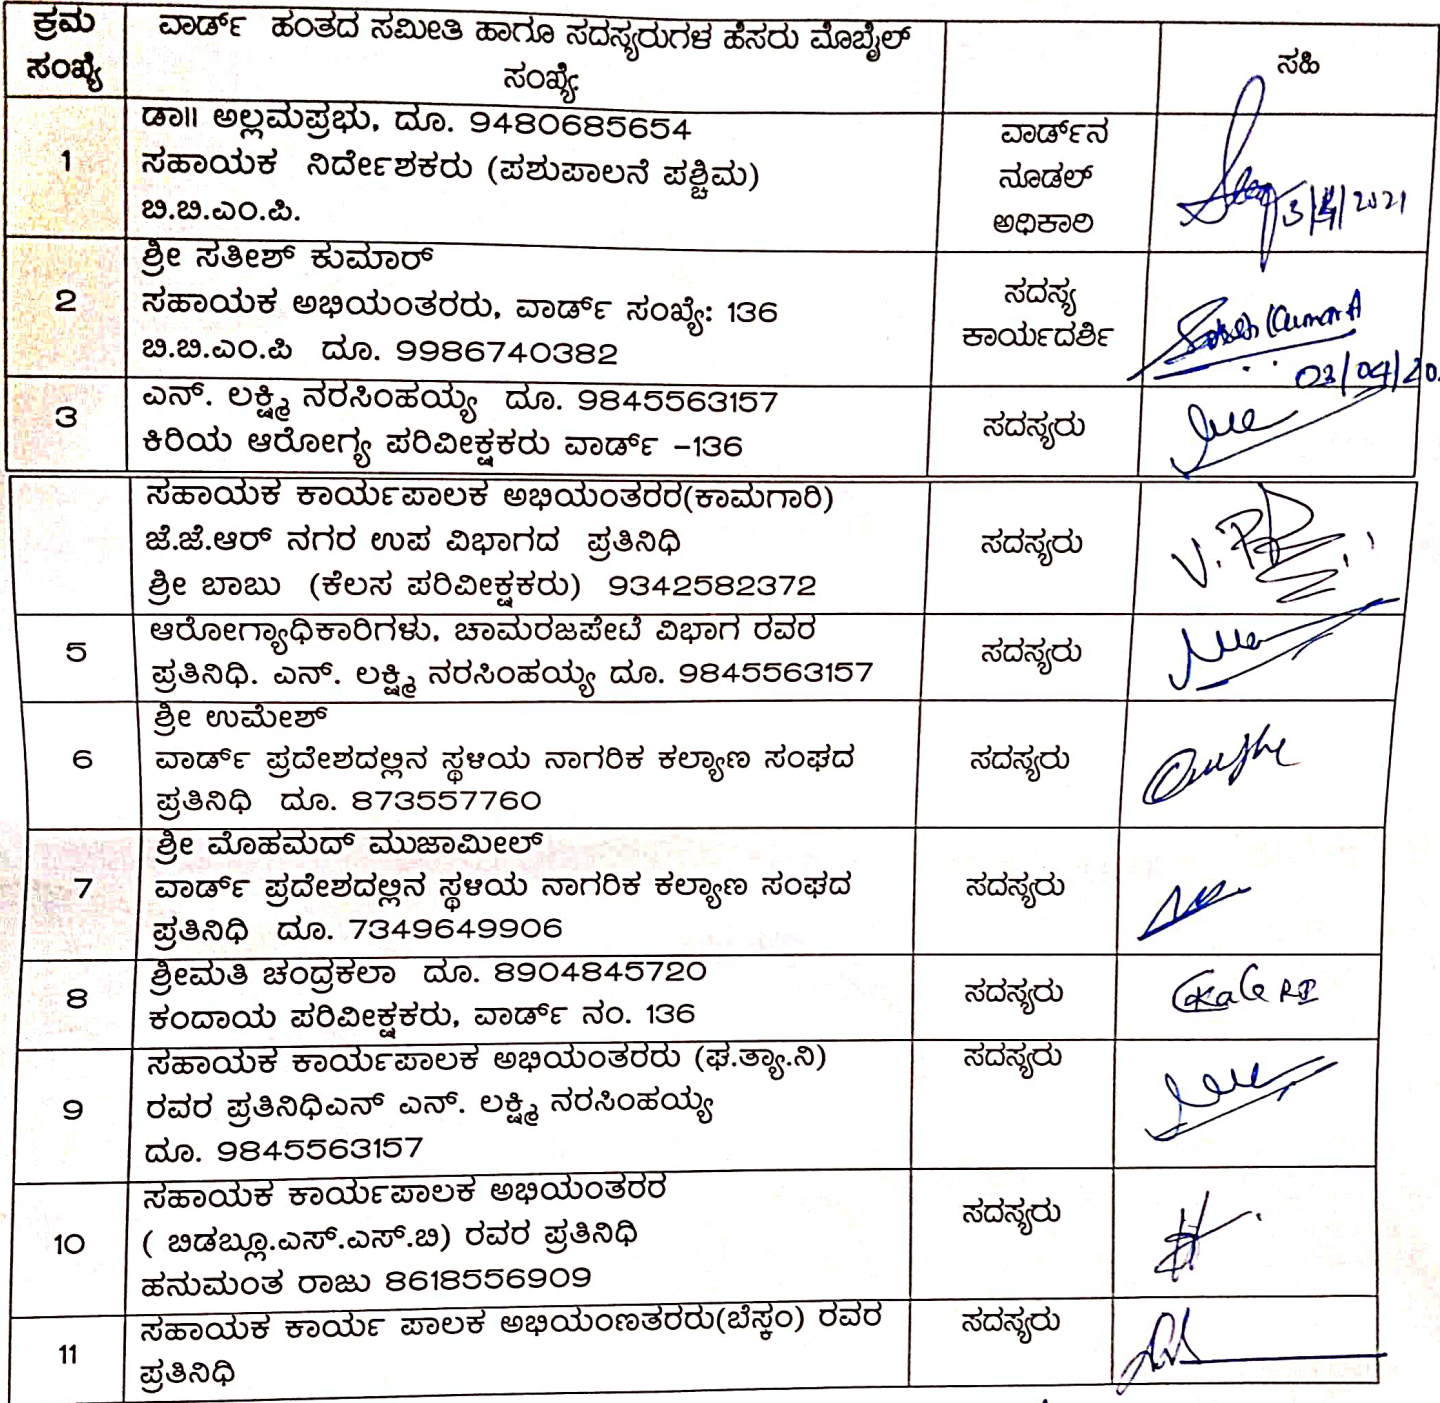 ಕ್ರಮ ಸಂಖ್ಯೆ
ವಾರ್ಡ್ ಹಂತದ ಸಮೀತಿ ಹಾಗೂ ಸದಸ್ಯರುಗಳ ಹೆಸರು ಮೊಬೈಲ್
ಸಂಖ್ಯೆ
ಸಹಿ
1
ಡಾ॥ ಅಲ್ಲಮಪ್ರಭು, ದೂ. 9480685654
ಸಹಾಯಕ ನಿರ್ದೇಶಕರು (ಪಶುಪಾಲನೆ ಪಶ್ಚಿಮ)
ಬಿ.ಬಿ.ಎಂ.ಪಿ.
ವಾರ್ಡ್‌ನ
ನೂಡಲ್
ಅಧಿಕಾರಿ
3/4/2021
2
ಶ್ರೀ ಸತೀಶ್ ಕುಮಾರ್
ಸಹಾಯಕ ಅಭಿಯಂತರರು, ವಾರ್ಡ್ ಸಂಖ್ಯೆ: 136
ಬಿ.ಬಿ.ಎಂ.ಪಿ ದೂ. 9986740382
ಸದಸ್ಯ
ಕಾರ್ಯದರ್ಶಿ
03/04/20
3
ಎನ್. ಲಕ್ಷ್ಮಿ ನರಸಿಂಹಯ್ಯ ದೂ. 9845563157
ಕಿರಿಯ ಆರೋಗ್ಯ ಪರಿವೀಕ್ಷಕರು ವಾರ್ಡ್ -136
ಸದಸ್ಯರು
ಸಹಾಯಕ ಕಾರ್ಯಪಾಲಕ ಅಭಿಯಂತರರ(ಕಾಮಗಾರಿ)
ಜೆ.ಜೆ.ಆರ್ ನಗರ ಉಪ ವಿಭಾಗದ ಪ್ರತಿನಿಧಿ
ಶ್ರೀ ಬಾಬು (ಕೆಲಸ ಪರಿವೀಕ್ಷಕರು) 9342582372
ಸದಸ್ಯರು
5
ಆರೋಗ್ಯಾಧಿಕಾರಿಗಳು, ಚಾಮರಜಪೇಟೆ ವಿಭಾಗ ರವರ
ಪ್ರತಿನಿಧಿ. ಎನ್. ಲಕ್ಷ್ಮಿ ನರಸಿಂಹಯ್ಯ ದೂ. 9845563157
ಸದಸ್ಯರು
6
ಶ್ರೀ ಉಮೇಶ್
ವಾರ್ಡ್ ಪ್ರದೇಶದಲ್ಲಿನ ಸ್ಥಳಿಯ ನಾಗರಿಕ ಕಲ್ಯಾಣ ಸಂಘದ
ಪ್ರತಿನಿಧಿ ದೂ. 873557760
ಸದಸ್ಯರು
7
ಶ್ರೀ ಮೊಹಮದ್ ಮುಜಾಮೀಲ್
ವಾರ್ಡ್ ಪ್ರದೇಶದಲ್ಲಿನ ಸ್ಥಳಿಯ ನಾಗರಿಕ ಕಲ್ಯಾಣ ಸಂಘದ
ಪ್ರತಿನಿಧಿ ದೂ. 7349649906
ಸದಸ್ಯರು
8
ಶ್ರೀಮತಿ ಚಂದ್ರಕಲಾ ದೂ. 8904845720
ಕಂದಾಯ ಪರಿವೀಕ್ಷಕರು, ವಾರ್ಡ್ ನಂ. 136
ಸದಸ್ಯರು
9
ಸಹಾಯಕ ಕಾರ್ಯಪಾಲಕ ಅಭಿಯಂತರರು (ಘ.ತ್ಯಾ.ನಿ)
ರವರ ಪ್ರತಿನಿಧಿಎನ್ ಎನ್. ಲಕ್ಷ್ಮಿ ನರಸಿಂಹಯ್ಯ
ದೂ. 9845563157
ಸದಸ್ಯರು
10
ಸಹಾಯಕ ಕಾರ್ಯಪಾಲಕ ಅಭಿಯಂತರರ
( ಬಿಡಬ್ಲೂ.ಎಸ್.ಎಸ್.ಬಿ) ರವರ ಪ್ರತಿನಿಧಿ
ಹನುಮಂತ ರಾಜು 8618556909
ಸದಸ್ಯರು
11
ಸಹಾಯಕ ಕಾರ್ಯ ಪಾಲಕ ಅಭಿಯಂಣತರರು(ಬೆಸ್ಕಂ) ರವರ
ಪ್ರತಿನಿಧಿ
ಸದಸ್ಯರು